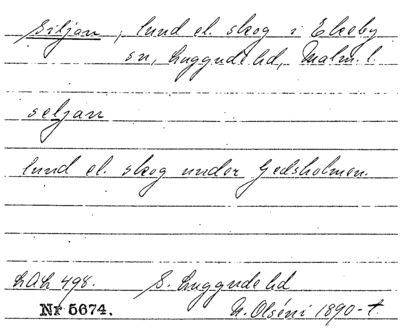 Siljan, lund el. skog i Ekeby
sn, Luggude hd, Malm. l.
seljan
lund el. skog under Gedsholmen.
LAL 498. S. Luggude hd
Nr 5674. N. Olséni 1890-t.